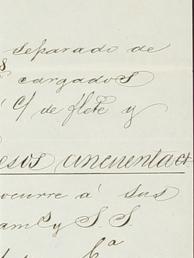 separado de
s cargados
c/ de flete y
esos cincuenta ct
ocurre á sus
am S y S. S.
Cª